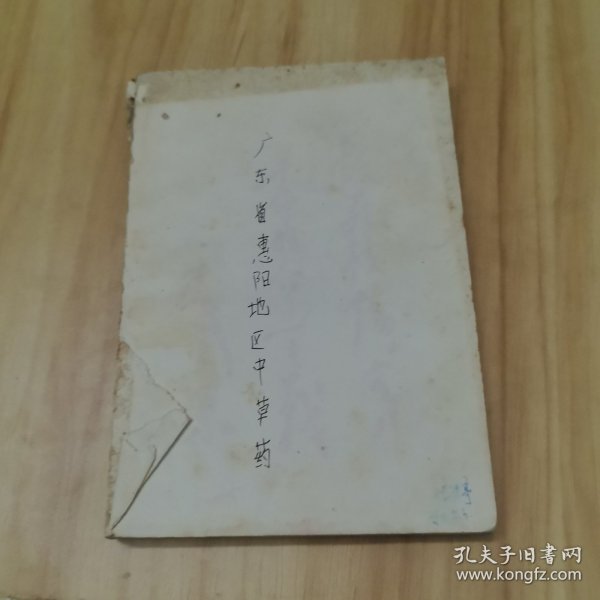 广东省惠阳地区中草药
孔夫子旧书网
www.kongfz.com